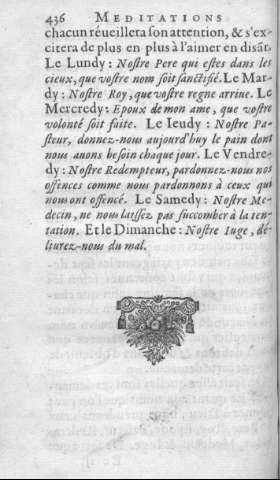 436 MEDITATIONS
chacun réueillera son attention, & s'ex-
citera de plus en plus à l'aimer en disãt.
Le Lundy: Nostre Pere qui estes dans les
cieux, que vostre nom soit sanctifié. Le Mar-
dy: Nostre Roy, que vostre regne arriue. Le
Mercredy: Epoux de mon ame, que vostre
volonté soit faite. Le Ieudy: Nostre Pa-
steur, donnez-nous aujourd'huy le pain dont
nous auons besoin chaque jour. Le Vendre-
dy: Nostre Redempteur, pardonnez-nous nos
offences comme nous pardonnons à ceux qui
nous ont offencé. Le Samedy: Nostre Me-
decin, ne nous laissez pas succomber à la ten-
tation. Et le Dimanche: Nostre Iuge, dé-
liurez-nous du mal.